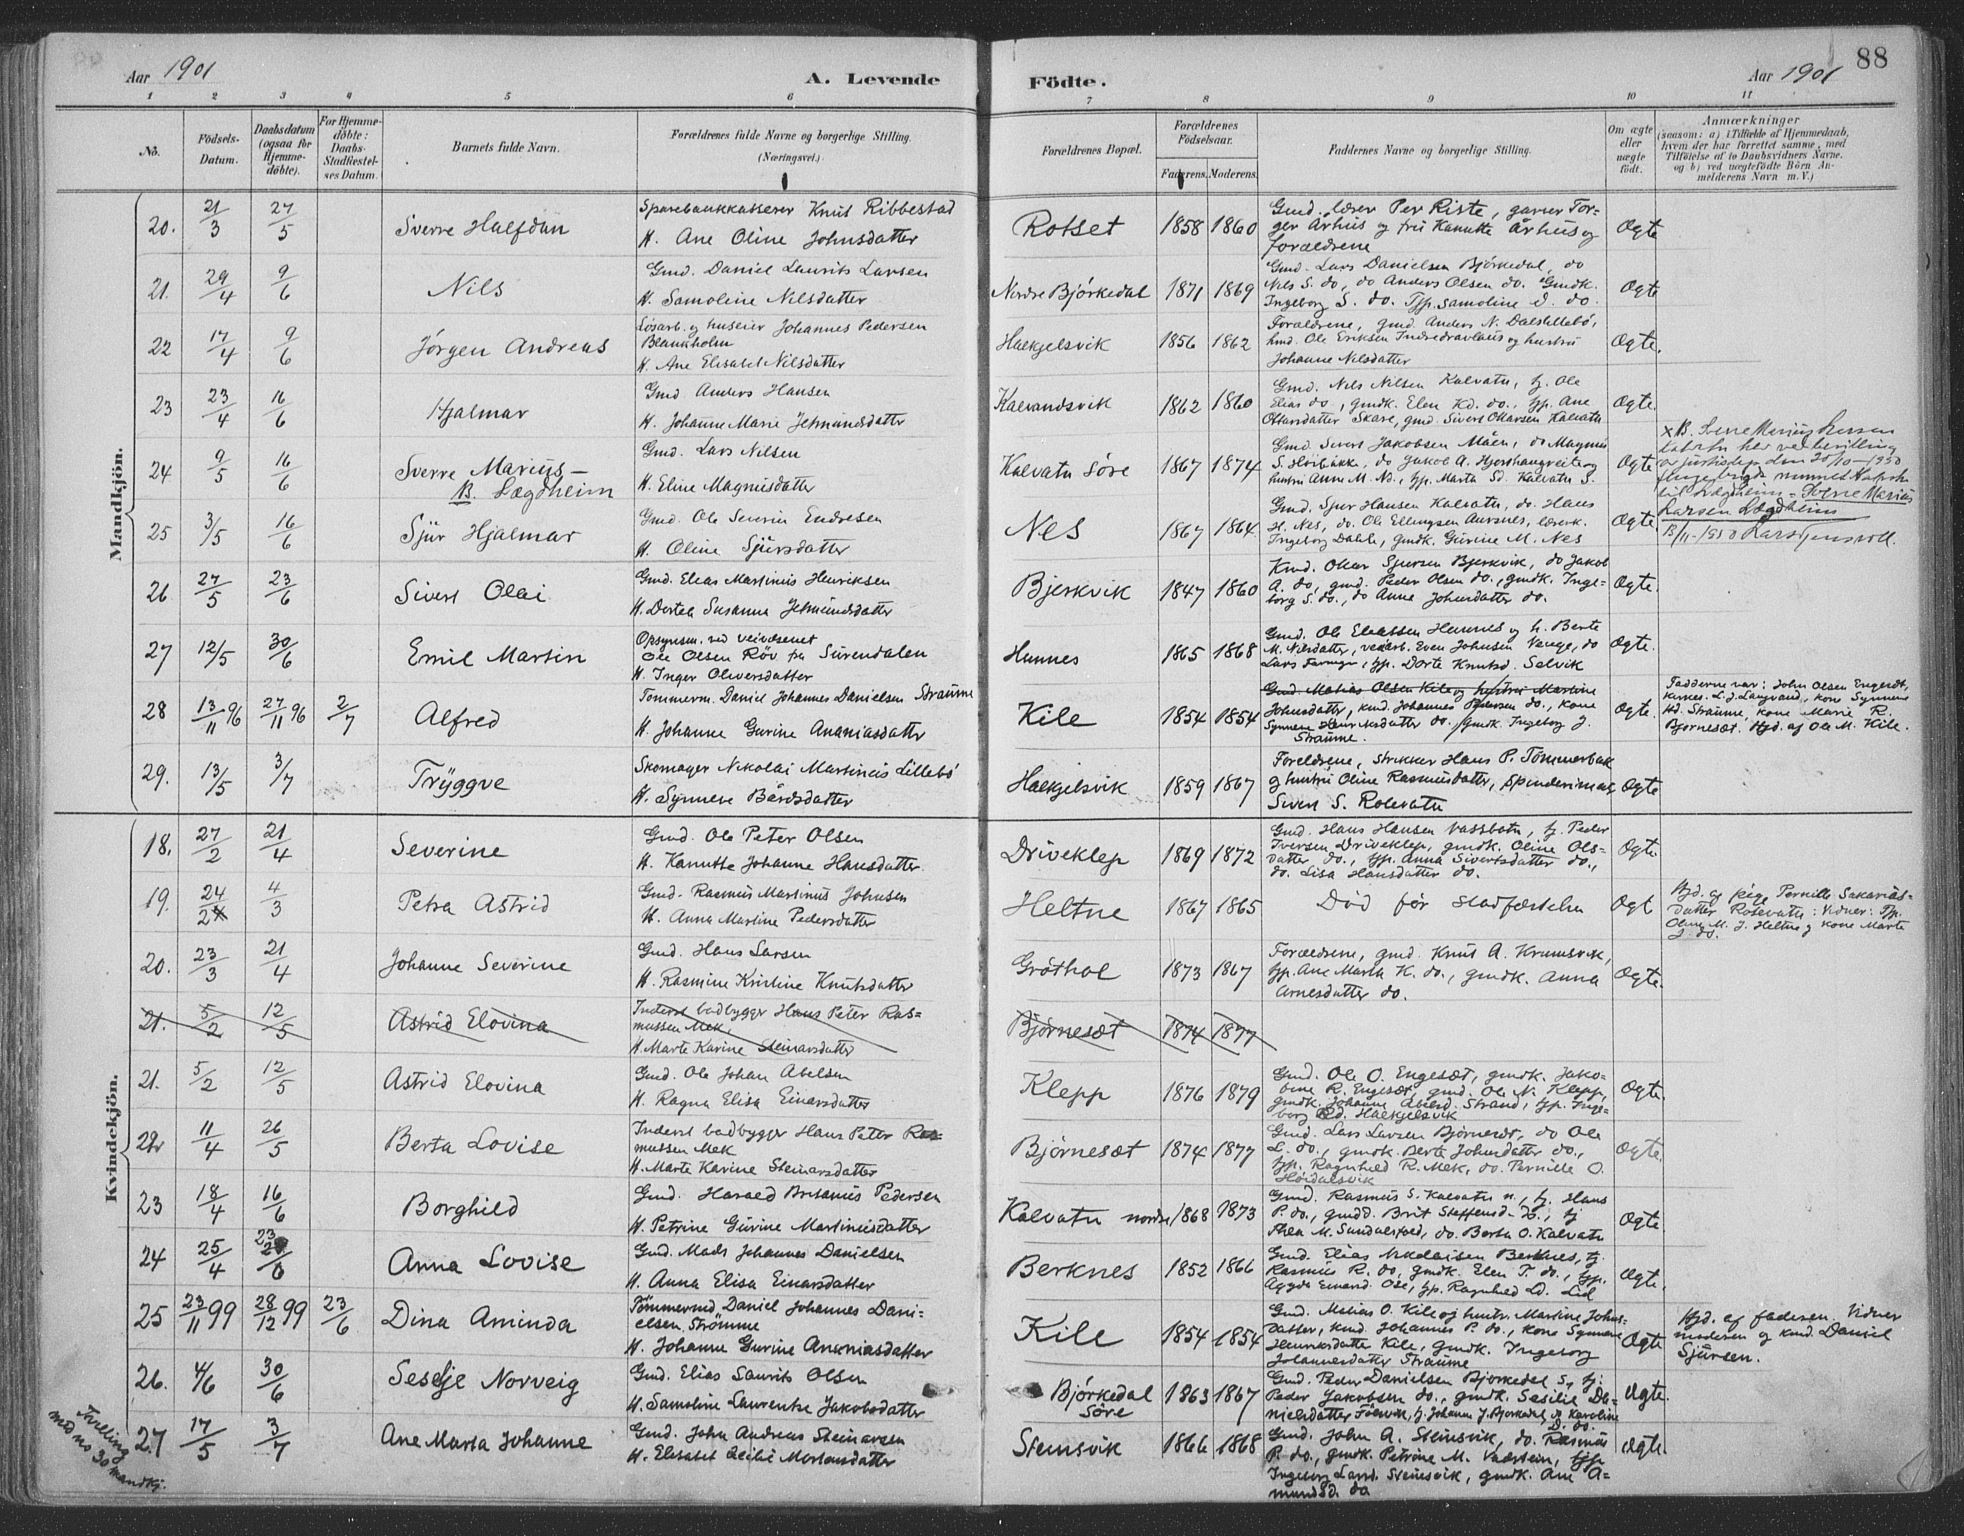 Aar 1901
A. Levende
Födte.
Aar 1901
88
1 2 3 4 5 6 7 8 9 10 11
No.
Födsels-
Datum.
Daabsdatum
(ogsaa for
Hjemme-
döbte).
For Hjemme-
döbte:
Daabs-
Stadfæstel-
ses Datum.
Barnets fulde Navn.
Forældrenes fulde Navne og borgerlige Stilling.
(Næringsvei.)
Forældrenes Bopæl.
Forældrenes
Födselsaar.
Faderens. Moderens.
Faddernes Navne og borgerlige Stilling.
Om ægte
eller
uægte
födt.
Anmærkninger
(saasom: a) i Tilfælde af Hjemmedaab,
hvem der har forrettet samme, med
Tilföielse af to Daabsvidners Navne.
og b) ved uægtefödte Börn An-
melderens Navn m. V.)
Mandkjön.
20. 21/3 27/5 Sverre Halfdan
Sparebankkasserer Knut Ribbestad
H. Ane Oline Johnsdatter
Rotset 1858 1860
Gmd. lærer Per Riste, garver Tor-
ger Århus og fru Kanutte Århus og
forældrene
Ægte
21. 29/4 9/6 Nils
Gmd. Daniel Laurits Larsen
H. Samoline Nilsdatter
Nordre Bjørkedal 1871 1869
Gmd. Lars Danielsen Bjørkedal, do
Nils S. do, do Anders Olsen do. Gmdk.
Ingeborg S. do. Tjp. Samoline d. do.
Ægte
22 17/4 9/6 Jørgen Andreas
Løsarb. og huseier Johannes Pedersen
Blankholm
H. Ane Elisabet Nilsdatter
Hækjelsvik 1856 1862
Forældrene, gmd. Anders N. Dalslillebø,
kmd. Ole Eriksen Indredravlaus og hustru
Johanne Nilsdatter
Ægte.
23 23/4 16/6 Hjalmar
Gmd Anders Hansen
H. Johanne Marie Jetmundsdatter
Kalvandsvik 1862 1860
Gmd. Nils Nilsen Kalvatn, tj. Ole
Elias do, gmdk. Elen Kd. do., tjp. Ane
Ottarsdatter Skare, gmd Sivert Ottarsen Kalvatn
Ægte.
24 9/5 16/6 Sverre Marius –
B. Lægdheim
Gmd. Lars Nilsen
H. Eline Magnusdatter
Kalvatn Søre 1867 1874
Gmd. Sivert Jakobsen Måen, do Magnus
S. Hoibakke, do Jakob A. Hjorthaugveite og
hustru Anne M. Nd., tjp. Marta Sd. Kalvatn S.
Ægte
x B. Sverre Marius Larsen
Kalvatn har ved bevilling
av justisdep. den 20/10–1950
til Lægdheim – Sverre Marius
Larsen Lægdheim
25 3/5 16/6 Sjür Hjalmar
Gmd. Ole Severin Endresen
H. Oline Sjürsdatter
Nes 1867 1864
Gmd. Sjur Hansen Kalvatn, do. Hans
H. Nes, do. Ole Ellingsen Aursnes, lærerk.
Ingeborg Dahle, gmdk. Gurine M. Nes
Ægte.
26 27/5 23/6 Sivert Olai
Gmd. Elias Martinus Henriksen
H. Dortea Susanne Jetmundsdatter
Bjerkvik 1847 1860
Kmd. Ottar Sjursen Bjerkvik, do Jakob
A. do, gmd. Peder Olsen do., gmdk. Inge-
borg S. do., do Anne Johnsdatter do.
Ægte.
27 12/5 30/6 Emil Martin
Opsynsm. ved veivæsenet
Ole Olsen Röv fra Surendalen
H. Inger Oliversdatter
Hunnes 1865 1868
Gmd. Ole Eliassen Hunnes og h. Berte
M. Nilsdatter, veiarb. Even Johnsen Vaage, do
Lars Farmen, tjp. Dorte Knutsd. Selvik
Ægte.
28 13/11 96 27/11 96 2/7 Alfred
Tømmerm. Daniel Johannes Danielsen Straume
H. Johanne Gurine Ananiasdattr
Kile 1854 1854
Gmd. Matias Olsen Kile og hustru Martine
Johnsdatter, kmd. Johannes Pedersen do., kone
Synneve Henriksdatter do., gmdk. Ingeborg J.
Straume.
Ægte.
Fadderne var: John Olsen Engeset,
kirkes. L. J. Langvand, kone Synneve
Hd. Straume, kone Marie R.
Bjørnesæt. Hjd. af Ole M. Kile.
29. 13/5 3/7 Tryggve
Skomager Nikolai Martinus Lillebö
H. Synneve Bårdsdatter
Hækjelsvik 1859 1867
Foreldrene, Strikker Hans P. Tömmerbak
og hustru Oline Rasmusdatter, Spinderimas.
Sivert S. Rotevatn
Ægte
Kvindekjön.
18. 27/2 21/4 Severine
Gmd. Ole Peter Olsen
H. Kanutte Johanne Hansdatter
Driveklep 1869 1872
Gmd. Hans Hansen Vassbotn, tj. Peder
Iversen Driveklep, gmdk. Oline Ols-
datter do., tjp. Anna Sivertsdatter do.,
do. Lisa Hansdatter do.
Ægte.
19. 24/2 4/3 Petra Astrid
Gmd. Rasmus Martinus Johnsen
H. Anna Martine Pedersdatter
Heltne 1867 1865
Død før stadfæstelse
Ægt.
Hjd. af pige Pernille Sakarias-
datter Rotevatn: Vidner: Tjp.
Oline M. J. Heltne og kone Marte
J. do.
20. 23/3 21/4 Johanne Severine
Gmd. Hans Larsen
H. Rasmine Kristine Knutsdatter
Gröthol 1873 1867
Forældrene, gmd. Knut A. Krumsvik,
tjp. Ane Marta K. do., gmdk. Anna
Arnesdatter do.
Ægte.
21. 5/2 12/5 Astrid Elovina
Inderst badbygger Hans Peter Ras-
mussen Mek.
H. Marte Karine Steinarsdatter
Bjørnesæt 1874 1877
21. 5/2 12/5 Astrid Elovina
Gmd. Ole Johan Abelsen
H. Ragna Elisa Einarsdatter
Klepp 1876 1879
Gmd. Ole O. Engesæt, gmdk. Jako-
bine R. Engesæt, gmd. Ole N. Klepp,
gmdk. Johanne Abelsd. Strand, tjp. Inge-
borg Ed. Hækjelsvik
Ægte.
22 11/4 26/5 Berta Lovise
Inderst badbygger Hans Peter Ras-
mussen Mek
H. Marte Karine Steinarsdatter
Bjørnesæt 1874 1877
Gmd. Lars Larsen Bjørnesæt, do Ole
L. do., gmdk. Berte Johnsdatter do.,
tjp. Ragnhild R. Mek, do. Pernille O.
Høidalsvik
Ægte.
23 18/4 16/6 Borghild
Gmd. Harald Britanus Pedersen
H. Petrine Gurine Martinusdatter
Kalvatn nordre 1868 1873
Gmd. Rasmus S. Kalvatn n., tj. Hans
P. do., gmdd. Brit Steffensd. do., tj
Thea M. Sundalsfold, do. Berta O. Kalvatn
Ægte
24 25/4 23/6 Anna Lovise
Gmd. Mads Johannes Danielsen
H. Anna Elisa Einarsdatter
Berknes 1852 1866
Gmd. Elias Nikolaisen Berknes, tj.
Rasmus R. do, gmdk. Elen T. do., tjp.
Aagyda Einarsd. Ose, tjp. Ragnhild Ld. Lid
Ægte.
25 23/11 99 28/12 99 23/6 Dina Aminda
Tömmermd. Daniel Johannes Dani-
elsen Strömme
H. Johanne Gurine Ananiasdatter
Kile 1854 1854
Gmd. Matias O. Kile og hustr. Martine Johns-
datter, kmd. Johannes P. do., kone Synneve
Henriksdatter Kile, gmdk. Ingeborg
Johannesdatter Straume
Ægte
Hjd. af faderen. Vidner
moderen og kmd. Daniel
Sjursen.
26. 4/6 30/6 Seselje Norveig
Gmd. Elias Laurits Olsen
H. Samoline Laurentse Jakobsdatter
Bjørkedal
Søre 1863 1867
Gmd. Peder Danielsen Bjørkedal S., tj.
Peder Jakobsen do., gmdk. Sesilie Da-
nielsdatter Førsvik, tj. Johann J. Bjørkedal, do Karoline
D. do.
Ægte.
27 17/5 3/7 Ane Marta Johanne
Tvilling
med no 30 mandkj.
Gmd. John Andreas Steinarsen
H. Elisabet Cecilie Mortensdatter
Steinsvik 1866 1868
Gmd. John A. Steinsvik, do. Rasmus
P. do., gmdk. Petrine M. Vadstein, tjp
Ingeborg Larsd. Steinsvik, gmdk. Ane A-
mundsd. do
Ægte.